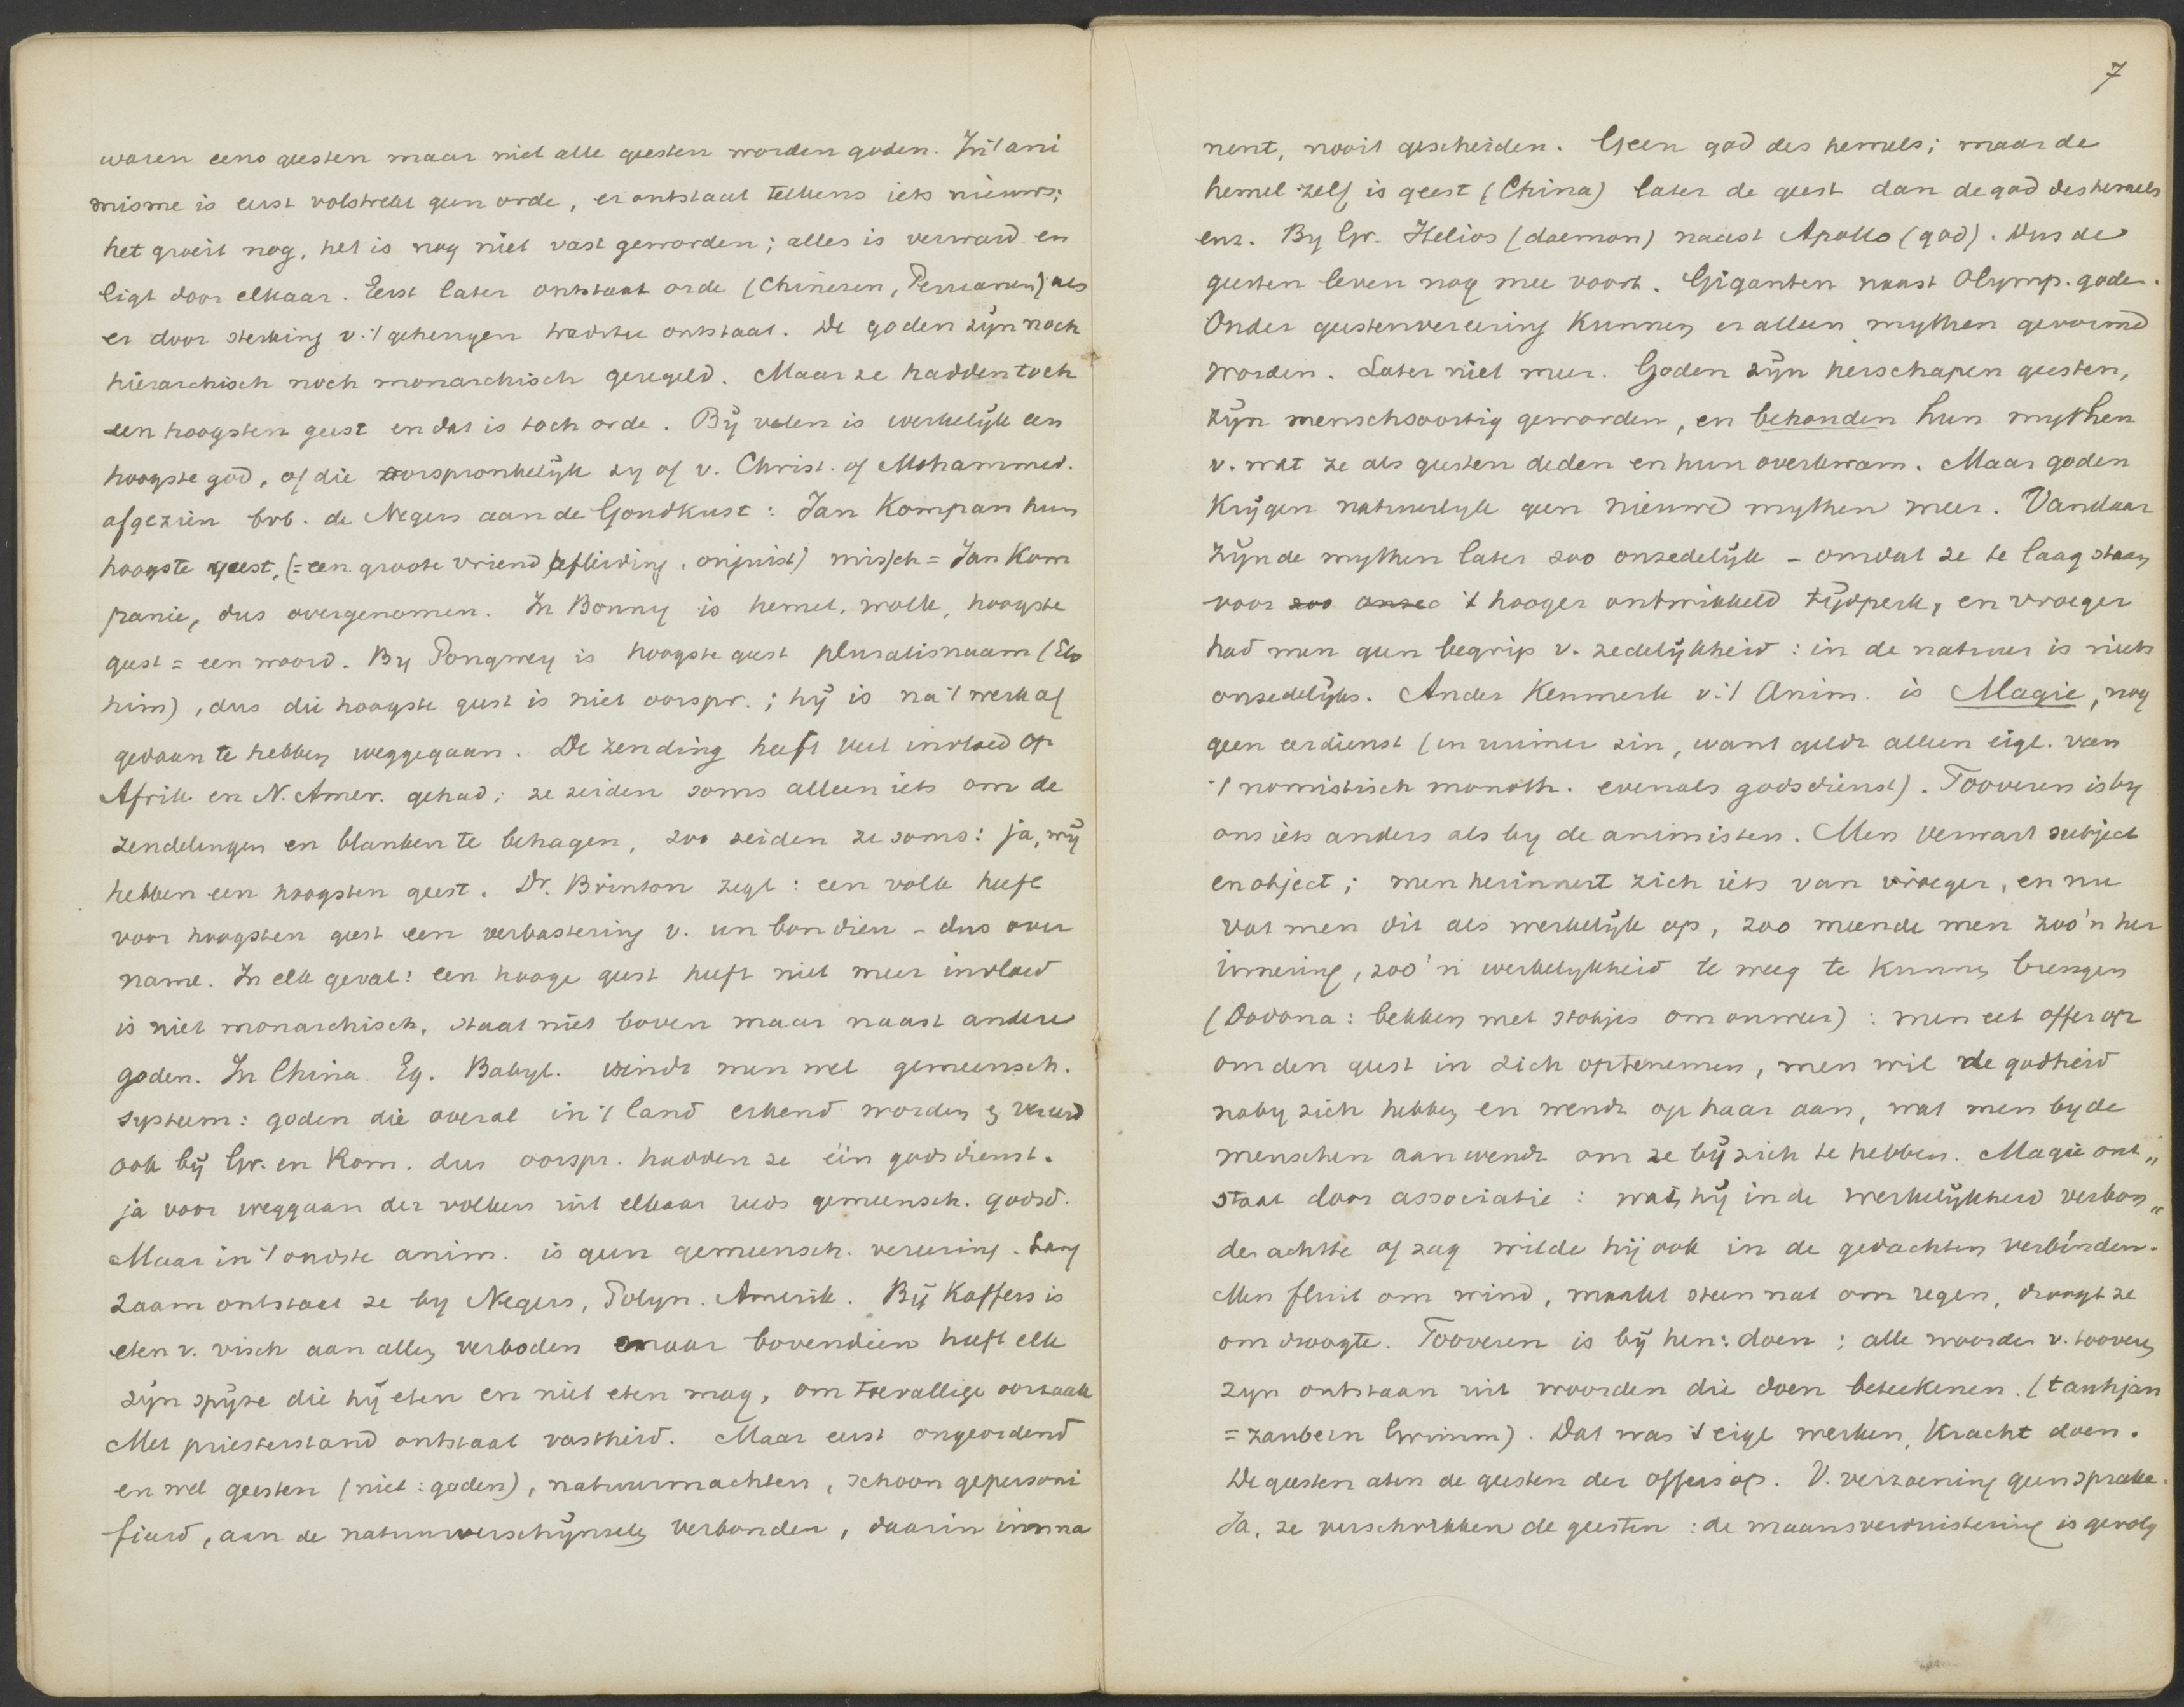 waren eens geesten maar niet alle geesten worden goden. In 't ani
misme is eerst volstrekt geen orde, er ontstaat telkens iets nieuws;
het groeit nog, het is nog niet vast geworden; alles is verward en
ligt door elkaar. Eerst later ontstaat orde (Chinezen, Peruanen) als
er door sterking v. 't geheugen traditie ontstaat. De goden zijn noch
hiërarchisch noch monarchisch geregeld. Maar ze hadden toch
een hoogsten geest en dat is toch orde. Bij velen is werkelijk een
hoogste god, of die oorspronkelijk zy of v. Christ. of Mohammed.
afgezien bvb. de Negers aan de Goudkust: Jan Kompan hun
hoogste geest, (= een groote vriend afleiding, onjuist) missch = Jan Kom
panie, dus overgenomen. In Bonny is hemel, wolk, hoogste
geest = een woord. By Pongwey is hoogste geest pluralisnaam (Elo
him), dus die hoogste geest is niet oorspr.; hij is na 't werk af
gedaan te hebben weggegaan. De zending heeft veel invloed op
Afrik en N. Amer. gehad; ze zeiden soms alleen iets om de
zendelingen en blanken te behagen, zoo zeiden ze soms: ja, wij
hebben een hoogsten geest. Dr. Brinton zegt: een volk heeft
voor hoogsten geest een verbastering v. un bon dieu - dus over
name. In elk geval: een hooge geest heeft niet meer invloed
is niet monarchisch, staat niet boven maar naast andere
goden. In China Eg. Babyl. vindt men wel gemeensch.
systeem: goden die overal in 't land erkend worden & vereerd
ook bij Gr. en Rom. dus oorspr. hadden ze één godsdienst.
ja voor weggaan der volken uit elkaar reeds gemeensch. godsd.
Maar in 't oudste anim. is geen gemeensch. vereering. Lang
zaam ontstaat ze by Negers, Polyn. Amerik. Bij Kaffers is
eten v. visch aan allen verboden maar bovendien heeft elk
zijn spijze die hij eten en niet eten mag, om toevallige oorzaak
Met priesterstand ontstaat vastheid. Maar eerst ongeordend
en wel geesten (niet: goden), natuurmachten, schoon gepersoni
fiëerd, aan de natuurverschijnselen verbonden, daarin imma
7
nent, nooit gescheiden. Geen god des hemels; maar de
hemel zelf is geest (China) later de geest dan de god des hemels
enz. By Gr. Helios (daemon) naast Apollo (god). Dus de
geesten leven nog mee voort. Giganten naast Olymp. goden.
Onder geestenvereering kunnen er alleen mythen gevormd
worden. Later niet meer. Goden zijn herschapen geesten,
zijn menschsoortig geworden, en behouden hun mythen
v. wat ze als geesten deden en hun overkwam. Maar goden
krijgen natuurlyk geen nieuwe mythen meer. Vandaar
zijn de mythen later zoo onzedelijk - omdat ze te laag staan
voor zoo onzed 't hooger ontwikkeld tijdperk, en vroeger
had men geen begrip v. zedelijkheid: in de natuur is niets
onzedelijks. Ander kenmerk v. 't Anim. is Magie, nog
geen eerdienst (in ruimer zin, want geldt alleen eigl. van
't nomistisch monoth. evenals godsdienst). Tooveren is by
ons iets anders als by de animisten. Men verwart subject
en object; men herinnert zich iets van vroeger, en nu
vat men dit als werkelijk op, zoo meende men zoo'n her
innering, zoo'n werkelykheid te weeg te kunnen brengen
(Dodona: bekken met stokjes om onweer): men eet offer op
om den geest in zich optenemen, men wil de godheid
naby zich hebben en wendt op haar aan, wat men by de
menschen aanwendt om ze bij zich te hebben. Magie ont"
staat door associatie: wat hij in de werkelijkheid verbon"
den achtte of zag wilde hij ook in de gedachten verbinden.
Men fluit om wind, maakt steen nat om regen, droogt ze
om droogte. Tooveren is bij hen: doen; alle woorden v. tooveren
zyn ontstaan uit woorden die doen beteekenen. (taukjan
= zaubern Grimm). Dat was 't eigl werken, kracht doen.
De geesten aten de geesten der offers op. V. verzoening geen sprake.
Ja, ze verschrikken de geesten: de maansverduistering is gevolg